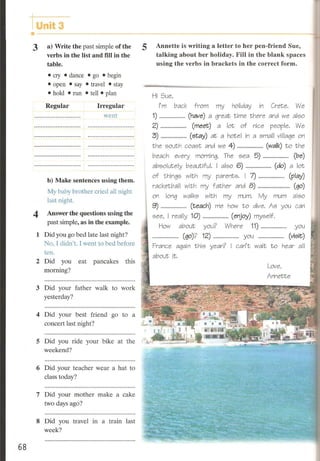 Unit 3
3 a) Write the past simple of the
verbs in the list and fill in the
table.
• cry • dance • go • begin
• open • say • travel • stay
• hold • run • tell • plan
Regular Irregular
went
b) Make sentences using them.
My baby brother cried all night
last night.
4 Answer the questions using the
past simple, as in the example.
1 Did you go bed late last night?
No, I didn't. I went to bed before
ten.
2 Did you eat pancakes this
morning?
3 Did your father walk to work
yesterday?
4 Did your best friend go to a
concert last night?
5 Did you ride your bike at the
weekend?
6 Did your teacher wear a hat to
class today?
7 Did your mother make a cake
two days ago?
8 Did you travel in a train last
week?
68
5 Annette is writing a letter to her pen-friend Sue,
talking about her holiday. Fill in the blank spaces
using the verbs in brackets in the correct form.
Hi Sue,
I'm back from my holiday in Crete. We
1) .................. (have) a great time there and we also
2) .................. (meet) a lot of nice people. We
3) .................. (stay) at a hotel in a small village on
the south coast and we 4) .................. (walk) to the
beach every morning. The sea 5) .................. (be)
absolutely beautiful. I also 6) .................. (do) a lot
of things with my parents. I 7) .................. (play)
racketball with my father and 8) .................. (go)
on long walks with my mum. My mum also
9) .................. (teach) me how to dive. As you can
see, I really 10) .................. (enjoy) myself.
How about you? Where 11) .................. you
.................. (go)? 12) .................. you .................. (visit)
France again this year? I can't wait to hear all
about it.
Love,
Annette